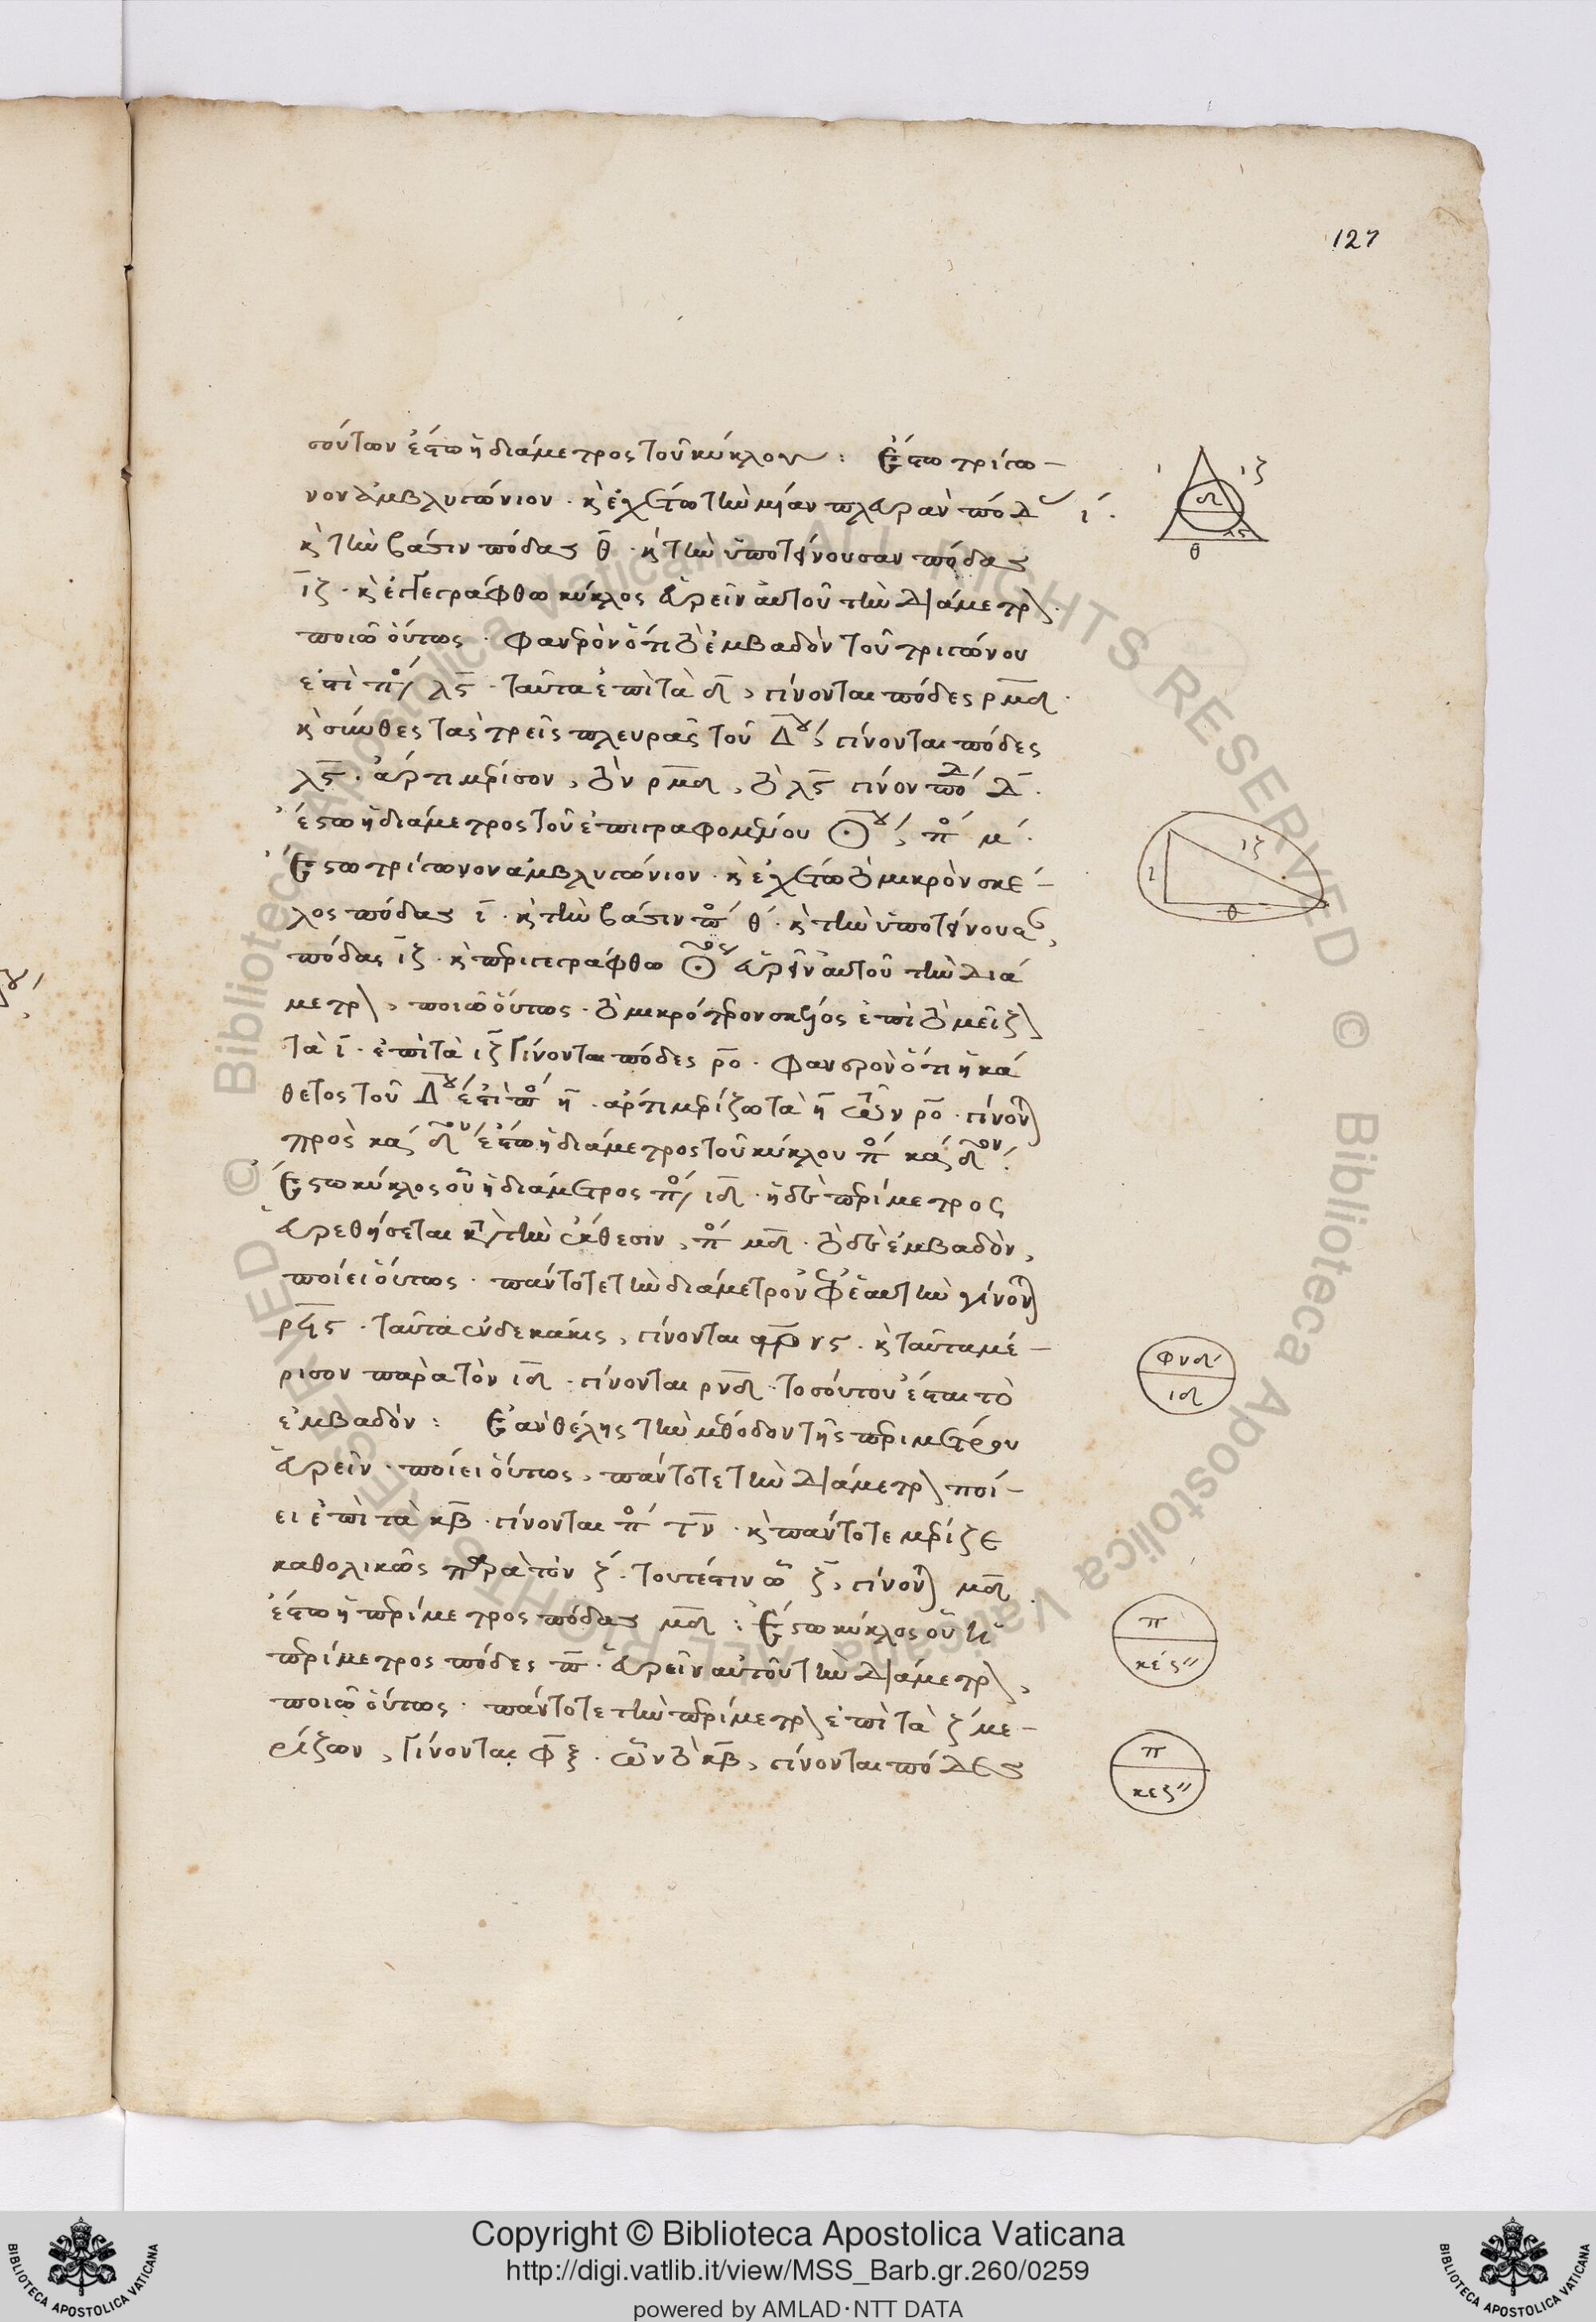 127
σούτων ἔστω ἡ διάμετρος τοῦ κύκλου : Ἔστω τρίγω-
νον ἀμβλυγώνιον · κ̀ ἐχέτω τὴν μίαν πλευρὰν πόδ ι ·
κ̀ τὴν βάσιν πόδας θ̄ · κ̀ τὴν ὑποτείνουσαν πόδας
ιζ · κ̀ ἐγγεγράφθω κύκλος εὑρεῖν αὐτοῦ τὴν διάμετρ
ποιῶ οὕτως · φανερὸν ὅτι τὸ ἐμβαδὸν τοῦ τριγώνου
ἐστὶ πο λϛ · ταῦτα ἐπὶ τὰ δ̄, γίνονται πόδες ρμδ ·
κ̀ σύνθες τὰς τρεῖς πλευρὰς τοῦ Δου γίνονται πόδες
λϛ · ἄρτι μέρισον, τὸν ρμδ, τὸ λϛ γίνον πόδ δ̄ ·
ἔστω ἡ διάμετρος τοῦ ἐπιγραφομένου ☉ου, πο
Ἔστω τρίγωνον ἀμβλυγώνιον · κ̀ ἐχέτω τὸ μικρὸν σκέ-
λος πόδας ῑ · κ̀ τὴν βάσιν πο θ · κ̀ τὴν ὑποτείνουσ,
πόδας ιζ · κ̀ περιγεγράφθω ☉ος εὑρεῖν αὐτοῦ τὴν διά
μετρ, ποιῶ οὕτως · τὸ μικρότερον σκέλος ἐπὶ τὸ μεῖζ
τὰ ῑ · ἐπὶ τὰ ιζ γίνονται πόδες ρο · φανερὸν ὅτι ἡ κά
θετος τοῦ Δου ἐστὶ πο η̄ · ἄρτι μερίζω τὰ η̄ ρο · γίνον
πρὸς κα δον ἔστω ἡ διάμετρος τοῦ κύκλου πο κα δον :
Ἔστω κύκλος οὗ ἡ διάμετρος πο ιδ · ἡ δὲ περίμετρος
εὑρεθήσεται κτ τὴν ἔκθεσιν, πο μδ · τὸ δὲ ἐμβαδὸν,
ποίει οὕτως · πάντοτε τὴν διάμετρον ἐφ ἑαυτὴν γίνον
ρϟϛ · ταῦτα ἑνδεκάκις, γίνονται ͵βρνϛ · κ̀ ταῦτα μέ-
ρισον παρὰ τὸν ιδ · γίνονται ρνδ · τοσούτου ἔσται τὸ
ἐμβαδόν : Ἐὰν θέλης τὴν μέθοδον τῆς περιμέτρου
εὑρεῖν · ποίει οὕτως, πάντοτε τὴν διάμετρ ποί-
ει ἐπὶ τὰ κβ · γίνονται πο τ̄ν̄ · κ̀ πάντοτε μέριζε
καθολικῶς παρὰ τὸν ζ · τουτέστιν ὧ ζ, γίνον μδ
ἔστω ἡ περίμετρος πόδας μδ : Ἔστω κύκλος οὗ ἡ
περίμετρος πόδες π̄ · εὑρεῖν αὐτοῦ τὴν διάμετρ,
ποιῶ οὕτως · πάντοτε τὴν περίμετρ ἐπὶ τὰ ζ με-
ρίζων, γίνονται φ̄ξ · ὧν τὸ κβ, γίνονται πόδες
ι ιζ
δ
θ
ιζ
ι
θ
φνδ
ιδ
π
κέϛ″
π
κεϛ″
Copyright © Biblioteca Apostolica Vaticana
http://digi.vatlib.it/view/MSS_Barb.gr.260/0259
powered by AMLAD·NTT DATA
BIBLIOTECA APOSTOLICA VATICANA
BIBLIOTECA APOSTOLICA VATICANA
© Biblioteca Apostolica Vaticana ALL RIGHTS RESERVED © Biblioteca Apostolica Vaticana ALL RIGHTS RESERVED